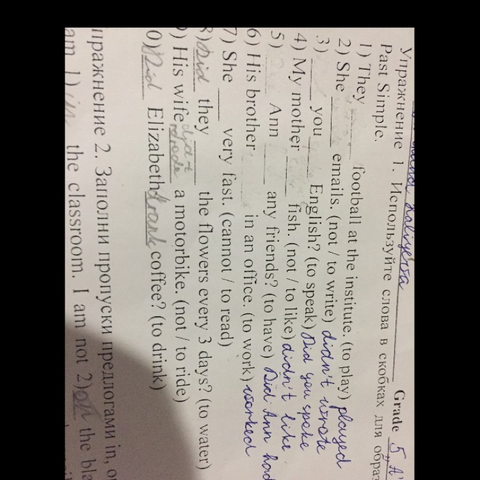 Grade 5 "A"
Упражнение 1. Используйте слова в скобках для образ
Past Simple.
1) They football at the institute. (to play) played
2) She emails. (not / to write) didn't wrote
3) ____ you ____ English? (to speak) Did you spoke
4) My mother fish. (not / to like) didn't like
5) Ann ____ any friends? (to have) Did Ann had
6) His brother in an office. (to work) worked
7) She ____ very fast. (cannot / to read)
8) Did they ____ the flowers every 3 days? (to water)
9) His wife a motorbike. (not / to ride)
0) Did Elizabeth drank coffee? (to drink)
пражнение 2. Заполни пропуски предлогами in, o
am 1) in the classroom. I am not 2) on the bla